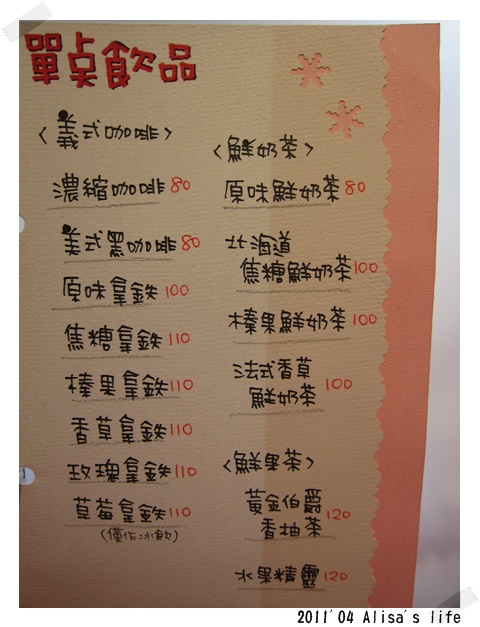 單点飲品
〈義式咖啡〉
濃縮咖啡 80
美式黑咖啡 80
原味拿鉄 100
焦糖拿鉄 110
榛果拿鉄 110
香草拿鉄 110
玫瑰拿鉄 110
草莓拿鉄 110
(僅作冰飲)
〈鮮奶茶〉
原味鮮奶茶 80
北海道
焦糖鮮奶茶 100
榛果鮮奶茶 100
法式香草
鮮奶茶 100
〈鮮果茶〉
黃金伯爵
香柚茶 120
水果精靈 120
2011'04 Alisa's life